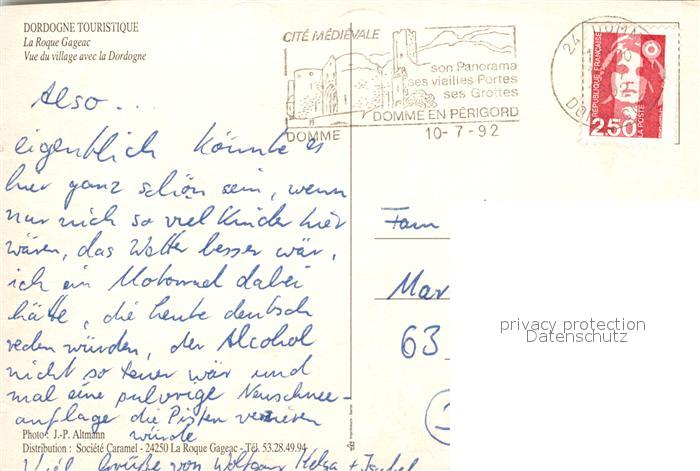 DORDOGNE TOURISTIQUE
La Roque Gageac
Vue du village avec la Dordogne
CITÉ MÉDIÉVALE
son Panorama
ses vieilles Portes
ses Grottes
DOMME EN PÉRIGORD
DOMME
10-7-92
24
RÉPUBLIQUE FRANÇAISE
2,50
LA POSTE
Also...
eigentlich könnte es
hier ganz schön sein, wenn
nur nich so viel Kinder hier
wären, das Wetter besser wär,
ich ein Motorrad dabei
hätte, die heute deutsch
reden würden, der Alcohol
nicht so teuer wär und
mal eine pulvrige Neuschnee-
auflage die Pisten verzieren
würde
Viel Grüße von Wolfgang Helga + Isabel
Fam
Mar
63
privacy protection
Datenschutz
Photo: J.-P. Altmann
Distribution : Société Caramel - 24250 La Roque Gageac - Tél. 53.28.49.94